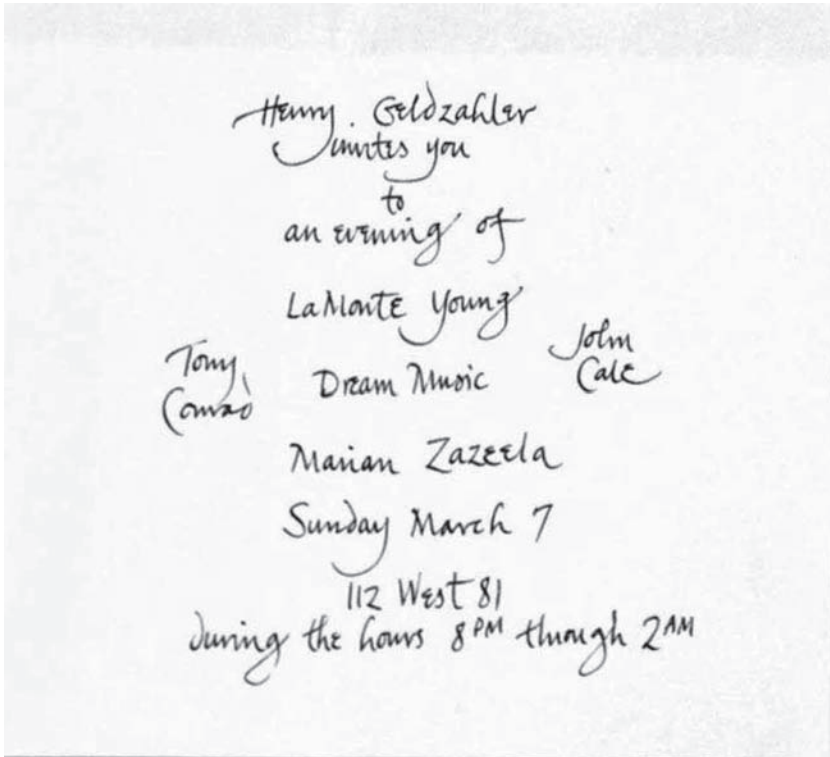 Henry Geldzahler
invites you
to
an evening of
LaMonte Young
Tony
Conrad
Dream Music
John
Cale
Marian Zazeela
Sunday March 7
112 West 81
during the hours 8PM through 2AM